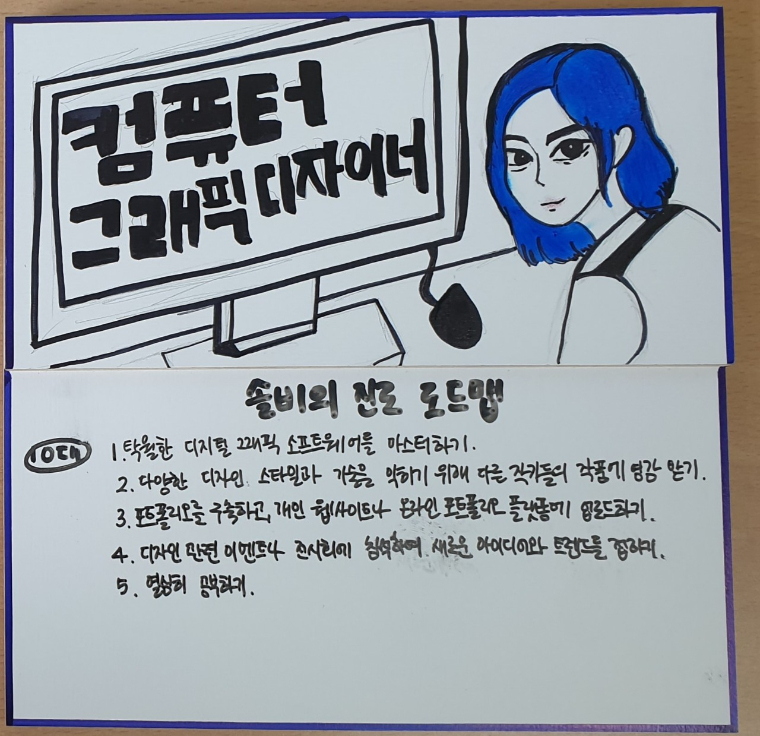 컴퓨터
그래픽 디자이너
솔비의 진로 로드맵
10대
1. 탁월한 디지털 그래픽 소프트웨어를 마스터하기.
2. 다양한 디자인 스타일과 기술을 익히기 위해 다른 작가들의 작품에 영감 받기.
3. 포트폴리오를 구축하고, 개인 웹사이트나 온라인 포트폴리오 플랫폼에 업로드하기.
4. 디자인 관련 이벤트나 전시회에 참석하여 새로운 아이디어와 트렌드를 접하기.
5. 열심히 공부하기.